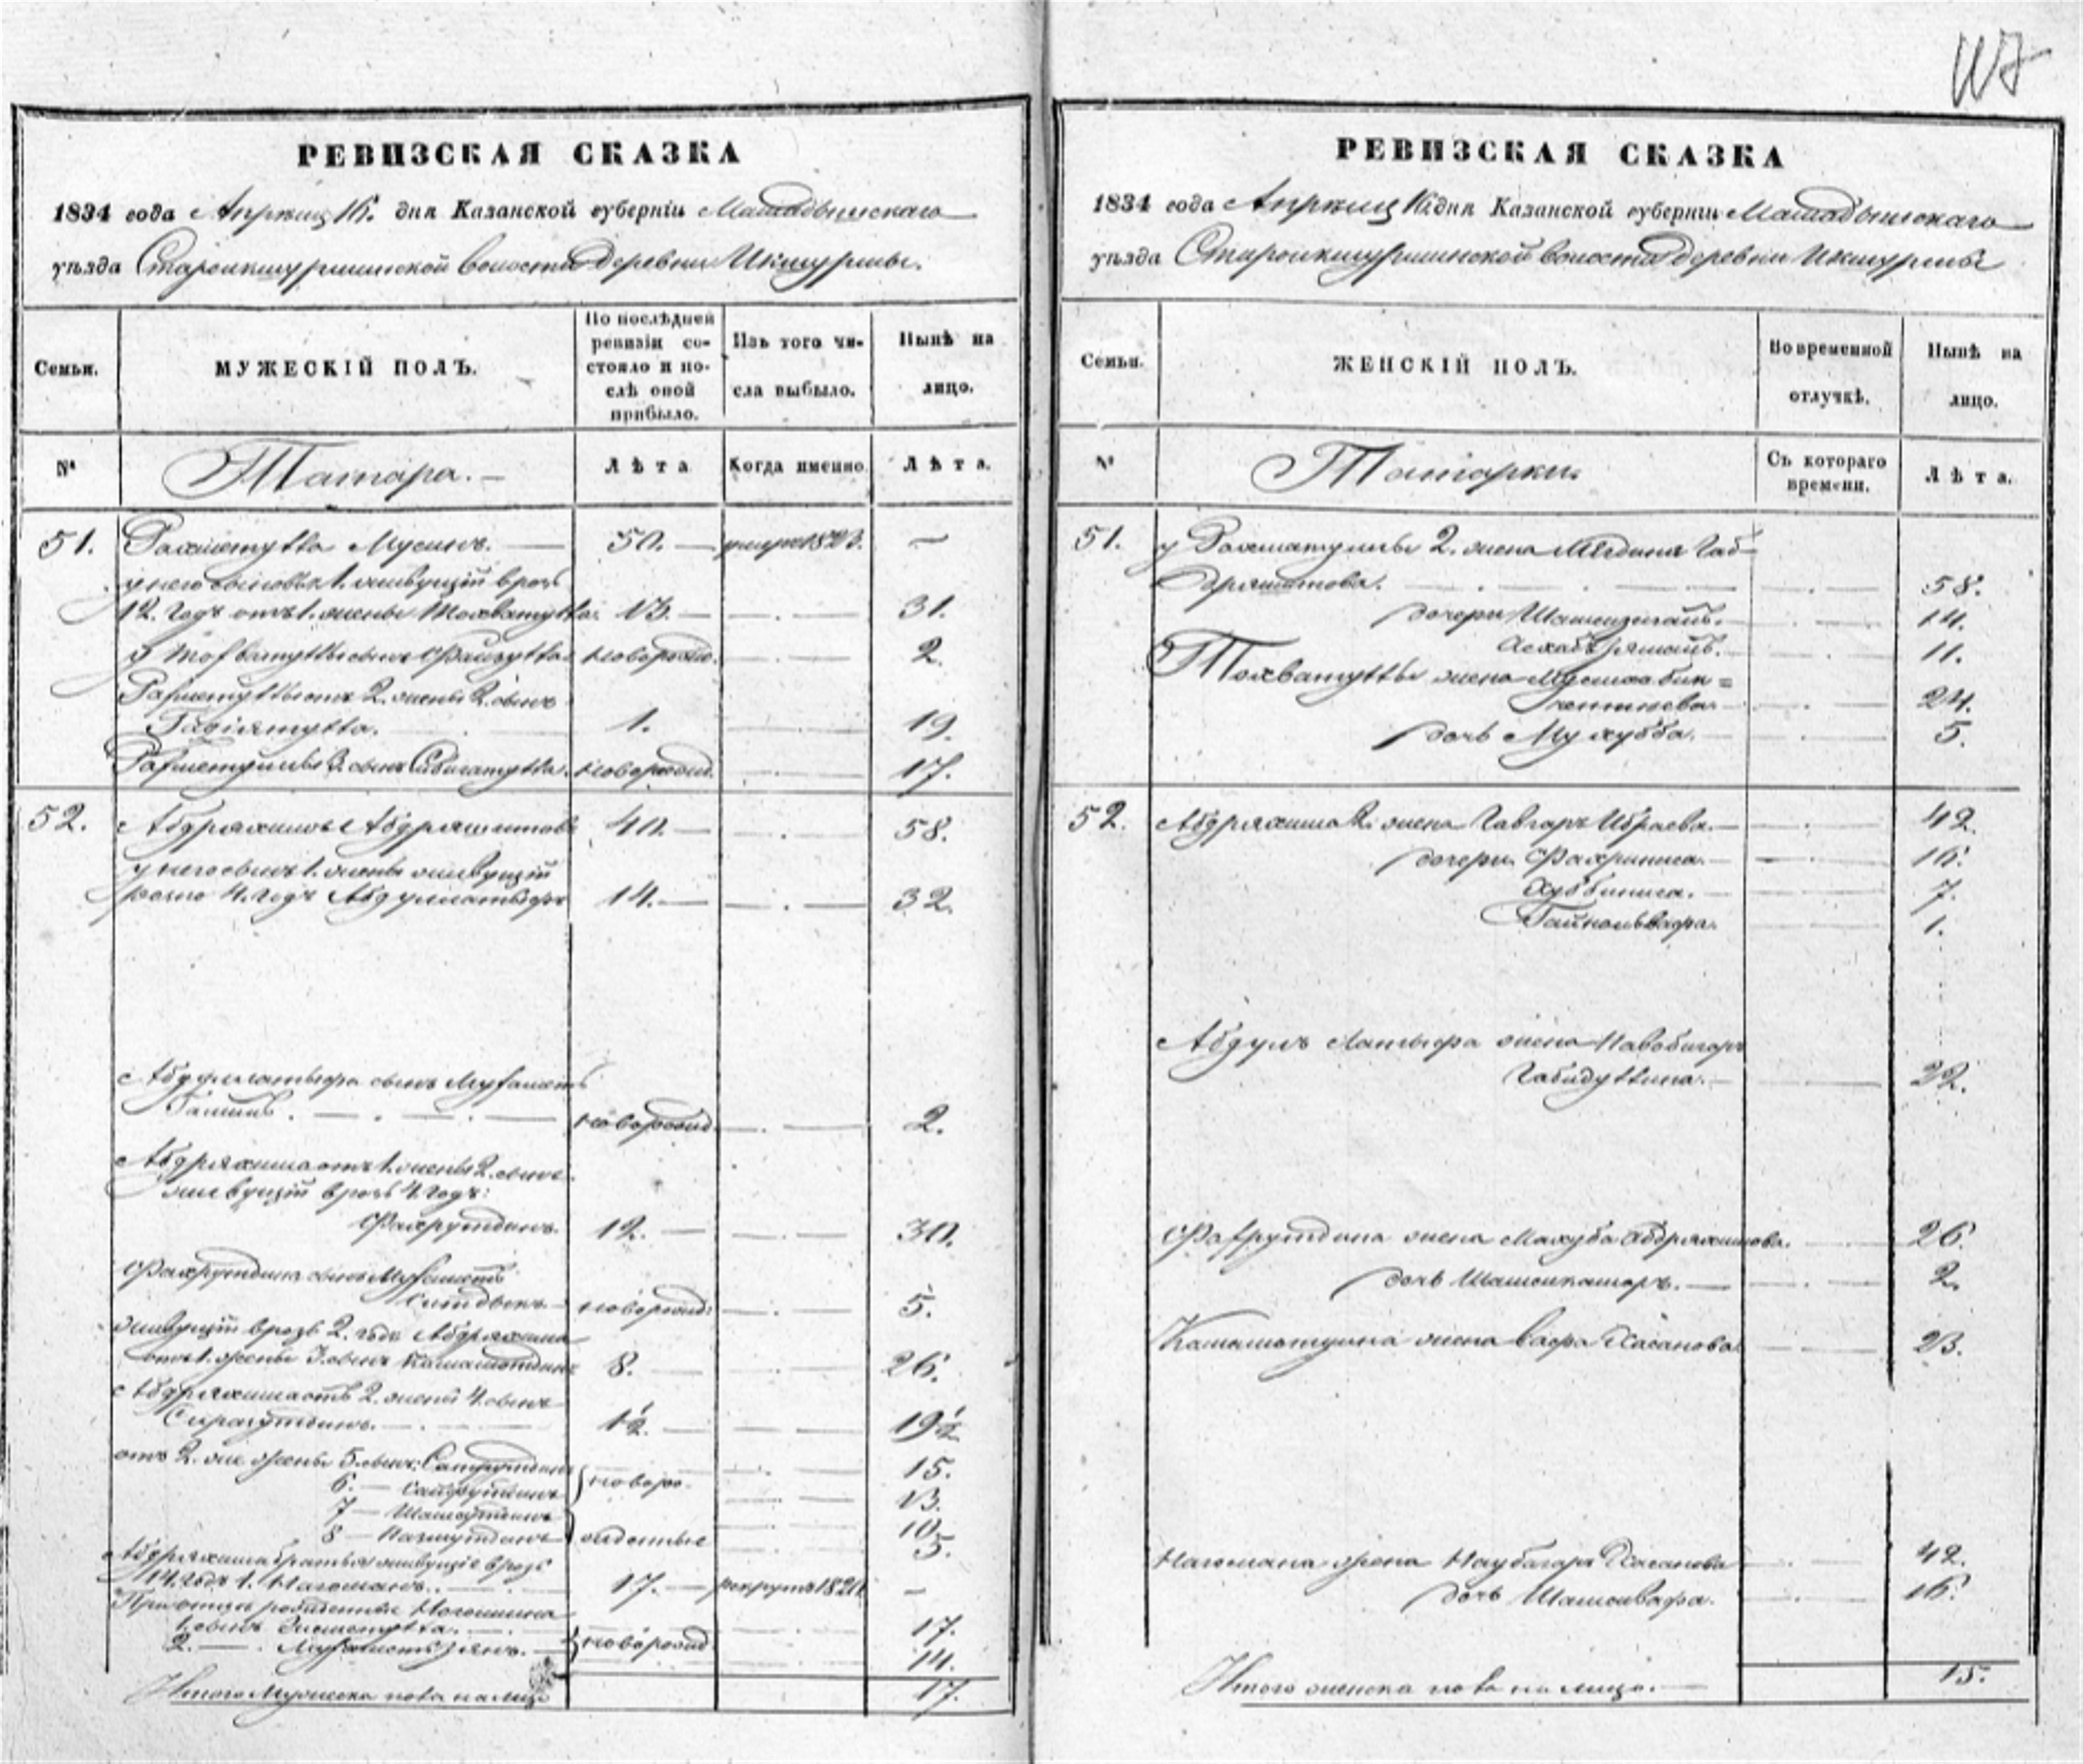 117
РЕВИЗСКАЯ СКАЗКА
1834 года Апрѣля 16. дня Казанской губерніи Мамадышскаго
уѣзда Староикшурминской волости деревни Икшурмы.
Семьи.
МУЖЕСКІЙ ПОЛЪ.
По послѣдней ревизіи состояло и послѣ оной прибыло.
Изъ того числа выбыло.
Нынѣ на лицо.
№
Татара.
Лѣта
Когда именно.
Лѣта.
51. Рахметулла Мусинъ. — 50. — умре 1823. —
у него сыновья 1. живущій врозь
12. годъ отъ 1. жены Тохватулла 13. — 31.
у Тохватуллы сынъ Файзулла новорожд. 2.
Рахметуллы отъ 2. жены 2. сынъ
1. 19.
Рахметуллы 3. сынъ новорожд. 17.
52. Абдряхимъ Абдряшитовъ 40. — 58.
у него сынъ 1. жены живущій
розно 4. годъ Абдуллатыфъ 14. — 32.
Абдуллатыфа сынъ Мухаметъ
новорожд. 2.
Абдряхима отъ 1. жены 2. сынъ
живущій врозь 4. годъ:
Фахрутдинъ. 12. — 30.
Фахрутдина сынъ Мухаметъ
Ситдыкъ. новорожд: 5.
живущій врозь 2. годъ Абдряхима
отъ 1. жены 3. сынъ Камалетдинъ 8. — 26.
Абдряхима отъ 2. жены 4. сынъ
Сиразутдинъ. 1½. — 19½
отъ 2. же жены 5. сынъ: 15.
6. — Сайфутдинъ новоро- 13.
7 — Шамсутдинъ 10.
8 — Назмутдинъ жденные 5.
Абдряхима братья живущіе врозь
14. годъ 1. Нагоманъ. 17. — рекрутъ 1820. —
При отцѣ рожденные Нагомана
1. сынъ 17.
2. — Мухаметзянъ. новорожд. 14.
Итого мужеска пола на лицо 17.
РЕВИЗСКАЯ СКАЗКА
1834 года Апрѣля 16. дня Казанской губерніи Мамадышскаго
уѣзда Староикшурминской волости деревни Икшурмы
Семьи.
ЖЕНСКІЙ ПОЛЪ.
Во временной отлучкѣ.
Нынѣ на лицо.
№
Татарки.
Съ котораго времени.
Лѣта.
51. у Рахматуллы 2. жена Мядина Габ-
дряшитова. 58.
дочери 14.
11.
Тохватуллы жена
24.
дочь Махубба. 5.
52. Абдряхима 2. жена Гавгаръ Ибраева. 42.
дочери Фахриниса. 16.
Хуббиниса. 7.
1.
Абдулъ Латыфа жена
Габидуллина. 22.
Фахрутдина жена Махуба Абдряхимова. 26.
дочь Шамсикамаръ. 2.
Камалетдина жена Вафа Хасанова. 23.
Нагомана жена Наубагаръ Хасанова 42.
дочь Шамсивафа. 16.
Итого женска пола на лицо. 15.